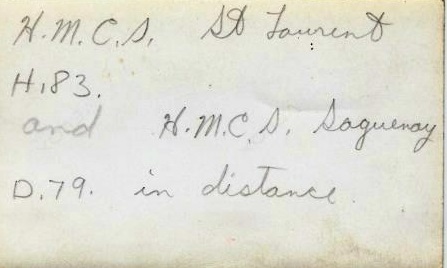 H.M.C.S. St Laurent
H.83.
and H.M.C.S. Saguenay
D.79. in distance.